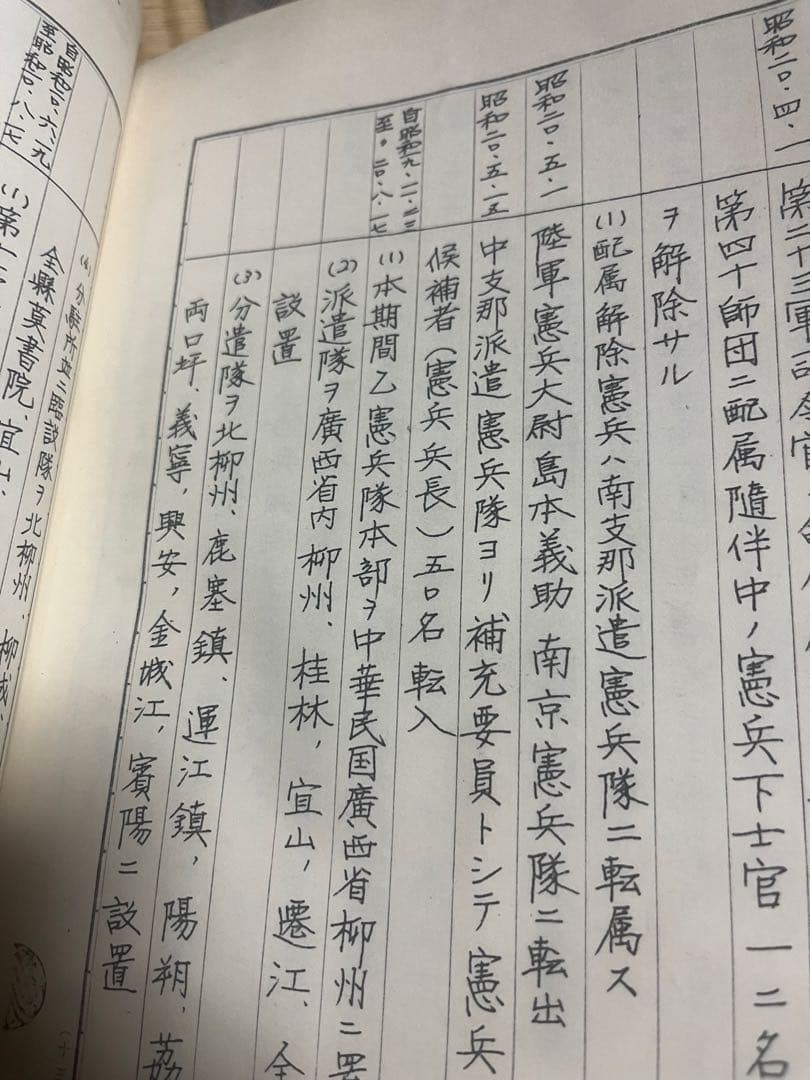 昭和二〇・四・一
第二十三軍司令官
第四十師団ニ配属随伴中ノ憲兵下士官一二名
ヲ解除サル
(1)配属解除憲兵ハ南支那派遣憲兵隊ニ転属ス
昭和二〇・五・一
陸軍憲兵大尉島本義助 南京憲兵隊ニ転出
昭和二〇・五・一五
中支那派遣憲兵隊ヨリ補充要員トシテ憲兵
候補者(憲兵兵長)五〇名転入
自昭和一九・一一・二三
至〃二〇・八・一七
(1)本期間乙憲兵隊本部ヲ中華民国廣西省柳州ニ置
(2)派遣隊ヲ廣西省内柳州、桂林、宜山、遷江、全
設置
(3)分遣隊ヲ北柳州、鹿塞鎮、運江鎮、陽朔、荔
両口坪、義寧、興安、金城江、賓陽ニ設置
自昭和二〇・六・九
至昭和二〇・八・一七
(4)分駐所並ニ臨設隊ヲ北柳州、柳城、
全縣莫書院、宜山、
(1)第